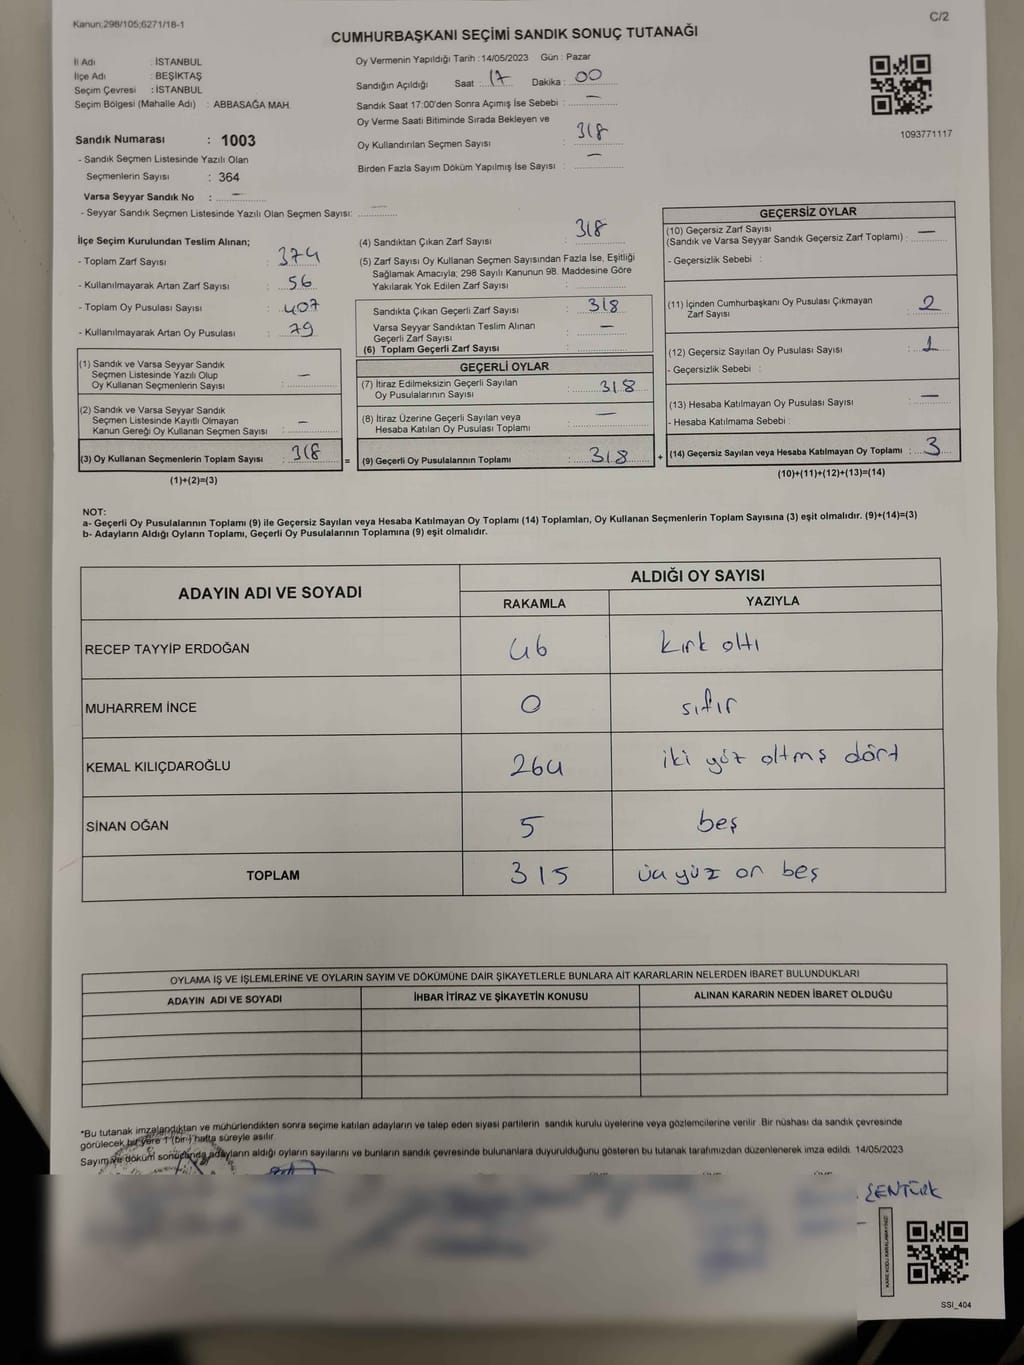 Kanun;298/105;6271/18-1
C/2
CUMHURBAŞKANI SEÇİMİ SANDIK SONUÇ TUTANAĞI
İl Adı : İSTANBUL
İlçe Adı : BEŞİKTAŞ
Seçim Çevresi : İSTANBUL
Seçim Bölgesi (Mahalle Adı) : ABBASAĞA MAH.
Sandık Numarası : 1003
- Sandık Seçmen Listesinde Yazılı Olan
Seçmenlerin Sayısı : 364
Varsa Seyyar Sandık No : —
- Seyyar Sandık Seçmen Listesinde Yazılı Olan Seçmen Sayısı: —
Oy Vermenin Yapıldığı Tarih :14/05/2023 Gün : Pazar
Sandığın Açıldığı Saat : 17 Dakika : 00
Sandık Saat 17:00'den Sonra Açımış İse Sebebi : —
Oy Verme Saati Bitiminde Sırada Bekleyen ve
Oy Kullandırılan Seçmen Sayısı : 318
Birden Fazla Sayım Döküm Yapılmış İse Sayısı : —
1093771117
İlçe Seçim Kurulundan Teslim Alınan;
- Toplam Zarf Sayısı : 374
- Kullanılmayarak Artan Zarf Sayısı : 56
- Toplam Oy Pusulası Sayısı : 407
- Kullanılmayarak Artan Oy Pusulası : 79
(1) Sandık ve Varsa Seyyar Sandık
Seçmen Listesinde Yazılı Olup
Oy Kullanan Seçmenlerin Sayısı : —
(2) Sandık ve Varsa Seyyar Sandık
Seçmen Listesinde Kayıtlı Olmayan
Kanun Gereği Oy Kullanan Seçmen Sayısı : —
(3) Oy Kullanan Seçmenlerin Toplam Sayısı : 318 =
(1)+(2)=(3)
(4) Sandıktan Çıkan Zarf Sayısı : 318
(5) Zarf Sayısı Oy Kullanan Seçmen Sayısından Fazla İse, Eşitliği
Sağlamak Amacıyla; 298 Sayılı Kanunun 98. Maddesine Göre
Yakılarak Yok Edilen Zarf Sayısı :
Sandıkta Çıkan Geçerli Zarf Sayısı : 318
Varsa Seyyar Sandıktan Teslim Alınan
Geçerli Zarf Sayısı : —
(6) Toplam Geçerli Zarf Sayısı :
GEÇERLİ OYLAR
(7) İtiraz Edilmeksizin Geçerli Sayılan
Oy Pusulalarının Sayısı : 318
(8) İtiraz Üzerine Geçerli Sayılan veya
Hesaba Katılan Oy Pusulası Toplamı : —
(9) Geçerli Oy Pusulalarının Toplamı : 318 +
GEÇERSİZ OYLAR
(10) Geçersiz Zarf Sayısı
(Sandık ve Varsa Seyyar Sandık Geçersiz Zarf Toplamı) : —
- Geçersizlik Sebebi :
(11) İçinden Cumhurbaşkanı Oy Pusulası Çıkmayan
Zarf Sayısı : 2
(12) Geçersiz Sayılan Oy Pusulası Sayısı : 1
- Geçersizlik Sebebi :
(13) Hesaba Katılmayan Oy Pusulası Sayısı : —
- Hesaba Katılmama Sebebi :
(14) Geçersiz Sayılan veya Hesaba Katılmayan Oy Toplamı : 3
(10)+(11)+(12)+(13)=(14)
NOT:
a- Geçerli Oy Pusulalarının Toplamı (9) ile Geçersiz Sayılan veya Hesaba Katılmayan Oy Toplamı (14) Toplamları, Oy Kullanan Seçmenlerin Toplam Sayısına (3) eşit olmalıdır. (9)+(14)=(3)
b- Adayların Aldığı Oyların Toplamı, Geçerli Oy Pusulalarının Toplamına (9) eşit olmalıdır.
ADAYIN ADI VE SOYADI
ALDIĞI OY SAYISI
RAKAMLA YAZIYLA
RECEP TAYYİP ERDOĞAN 46 kırk altı
MUHARREM İNCE 0 sıfır
KEMAL KILIÇDAROĞLU 264 iki yüz altmş dört
SİNAN OĞAN 5 beş
TOPLAM 315 üç yüz on beş
OYLAMA İŞ VE İŞLEMLERİNE VE OYLARIN SAYIM VE DÖKÜMÜNE DAİR ŞİKAYETLERLE BUNLARA AİT KARARLARIN NELERDEN İBARET BULUNDUKLARI
ADAYIN ADI VE SOYADI İHBAR İTİRAZ VE ŞİKAYETİN KONUSU ALINAN KARARIN NEDEN İBARET OLDUĞU
*Bu tutanak imzalandıktan ve mühürlendikten sonra seçime katılan adayların ve talep eden siyasi partilerin sandık kurulu üyelerine veya gözlemcilerine verilir. Bir nüshası da sandık çevresinde
görülecek bir yere 1 (bir) hafta süreyle asılır.
Sayım ve döküm sonucunda adayların aldığı oyların sayılarını ve bunların sandık çevresinde bulunanlara duyurulduğunu gösteren bu tutanak tarafımızdan düzenlenerek imza edildi. 14/05/2023
ŞENTÜRK
KARE KODU KARALAMAYINIZ!
SSI_404